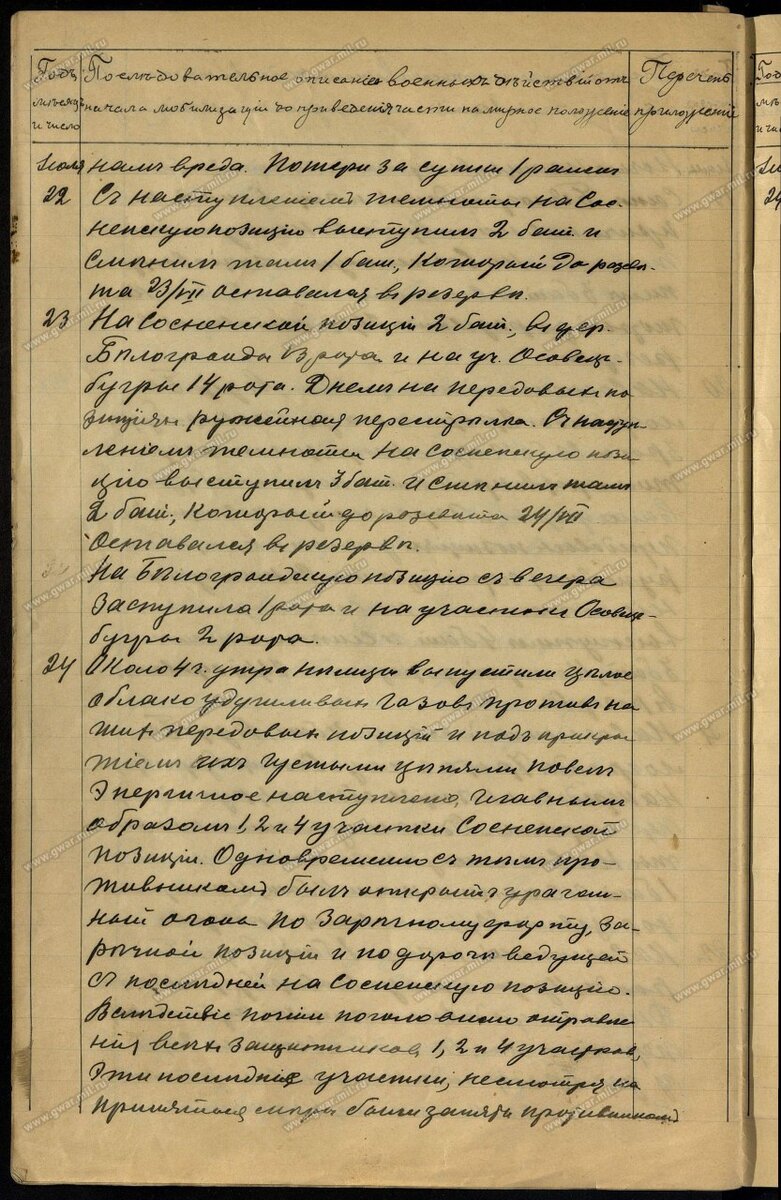 Годъ Последовательное описание военныхъ действiй отъ Перечень
месяцъ начала мобилизацiи до приведенiя части на мирное положенiе приложенiй
и число
Iюля намъ вреда. Потери за сутки 1 раненъ
22 Съ наступленiемъ темноты на Сос-
ненскую позицiю выступилъ 2 бат. и
смѣнилъ тамъ 1 бат., который до разсвѣ-
та 23/VII оставался въ резервѣ.
23 На Сосненской позицiи 2 бат., въ дер.
Бѣлогронды 13 рота и на уч. Осовецъ-
бугры 14 рота. Днемъ на передовыхъ по
зицiяхъ ружейная перестрѣлка. Съ насту-
пленiемъ темноты на Сосненскую пози-
цiю выступилъ 3 бат. и смѣнилъ тамъ
2 бат., который до разсвѣта 24/VII
оставался въ резервѣ.
На Бѣлогрондскую позицiю съ вечера
заступила 1 рота и на участокъ Осовецъ-
бугры 2 рота.
24 Около 4 ч. утра нѣмцы выпустили цѣлое
облако удушливыхъ газовъ противъ на
шихъ передовыхъ позицiй и подъ прикры
тiемъ ихъ густыми цѣпями повелъ
энергичное наступленiе, главнымъ
образомъ 1, 2 и 4 участки Сосненской
позицiи. Одновременно съ тѣмъ про-
тивникомъ былъ открытъ ураган-
ный огонь по Зарѣчному форту, За-
рѣчной позицiи и по дорогѣ ведущей
съ послѣдней на Сосненскую позицiю.
Вслѣдствiе почти поголовнаго отравле
нiя всѣхъ защитниковъ 1, 2 и 4 участковъ,
эти послѣднiе участки, несмотря на
принятыя мѣры были заняты противникомъ